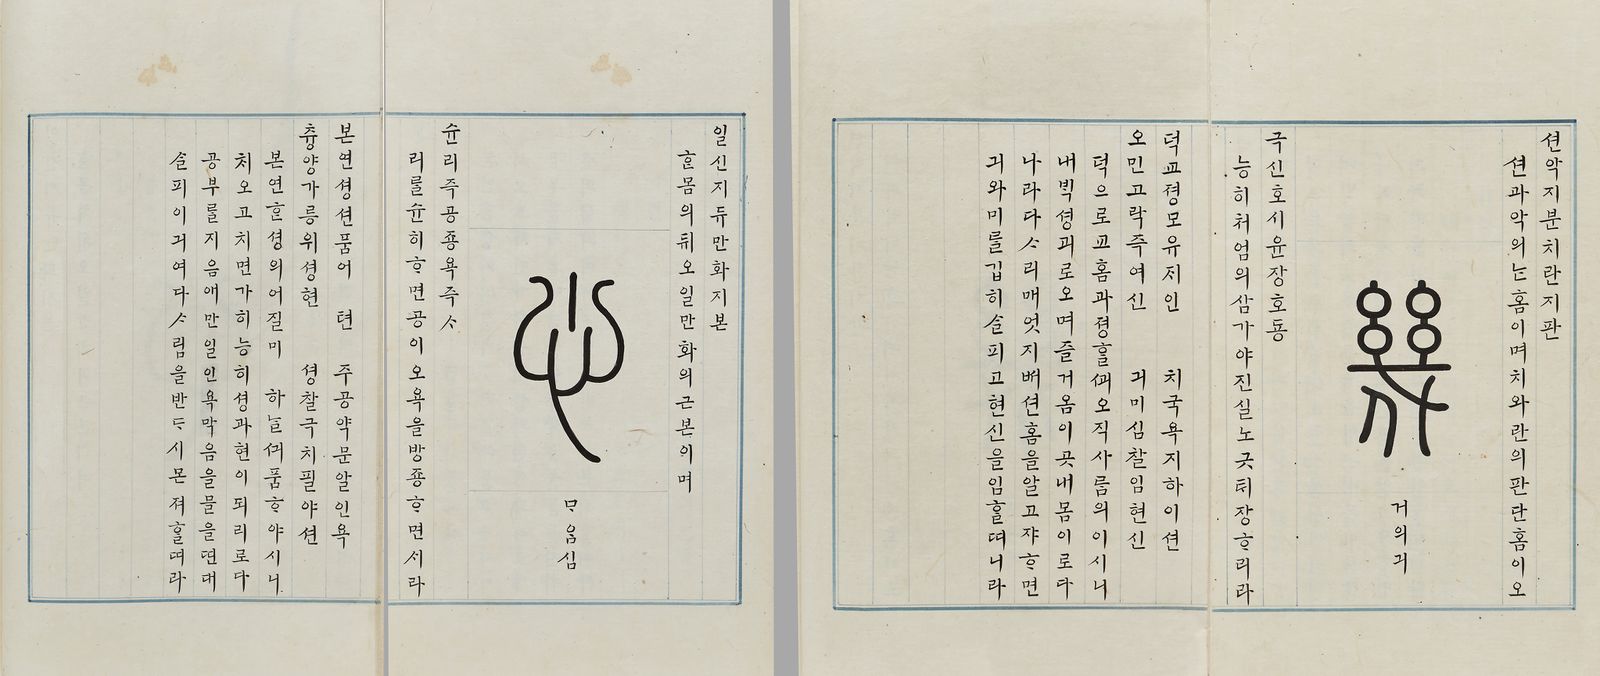 일신지듀만화지본
ᄒᆞᆫ몸의쥐오일만화의근본이며
心
ᄆᆞᄋᆞᆷ심
슌리즉공죵욕즉ᄉᆞ
리를슌히ᄒᆞ면공이오욕을방죵ᄒᆞ면서라
본연셩션품어텬 주공약문알인욕
츙양가릉위셩현 셩찰극치필야션
본연ᄒᆞᆫ셩의어질미하ᄂᆞᆯᄭᅴ품ᄒᆞ야시니
치오고치면가히능히셩과현이되리로다
공부를지음애만일인욕막음을믈을띤대
ᄉᆞᆯ피이긔여다ᄉᆞ림을반ᄃᆞ시몬져ᄒᆞᆯᄯᅵ라
션악지분치란지판
션과악의ᄂᆞᆫ홈이며치와란의판단홈이오
幾
거의긔
극신호시윤장호동
능히처엄의삼가야진실노긋티장ᄒᆞ리라
덕교졍모유저인 치국욕지하이션
오민고락즉여신 긔미심찰임현신
덕으로교홈과졍ᄒᆞᆯᄭᅬ오직사름의이시니
내ᄇᆡᆨ셩괴로오며즐거옴이곳내몸이로다
나라다ᄉᆞ리매엇지ᄡᅥ션홈을알고쟈ᄒᆞ면
긔와미를깁히ᄉᆞᆯ피고현신을임ᄒᆞᆯᄯᅵ니라